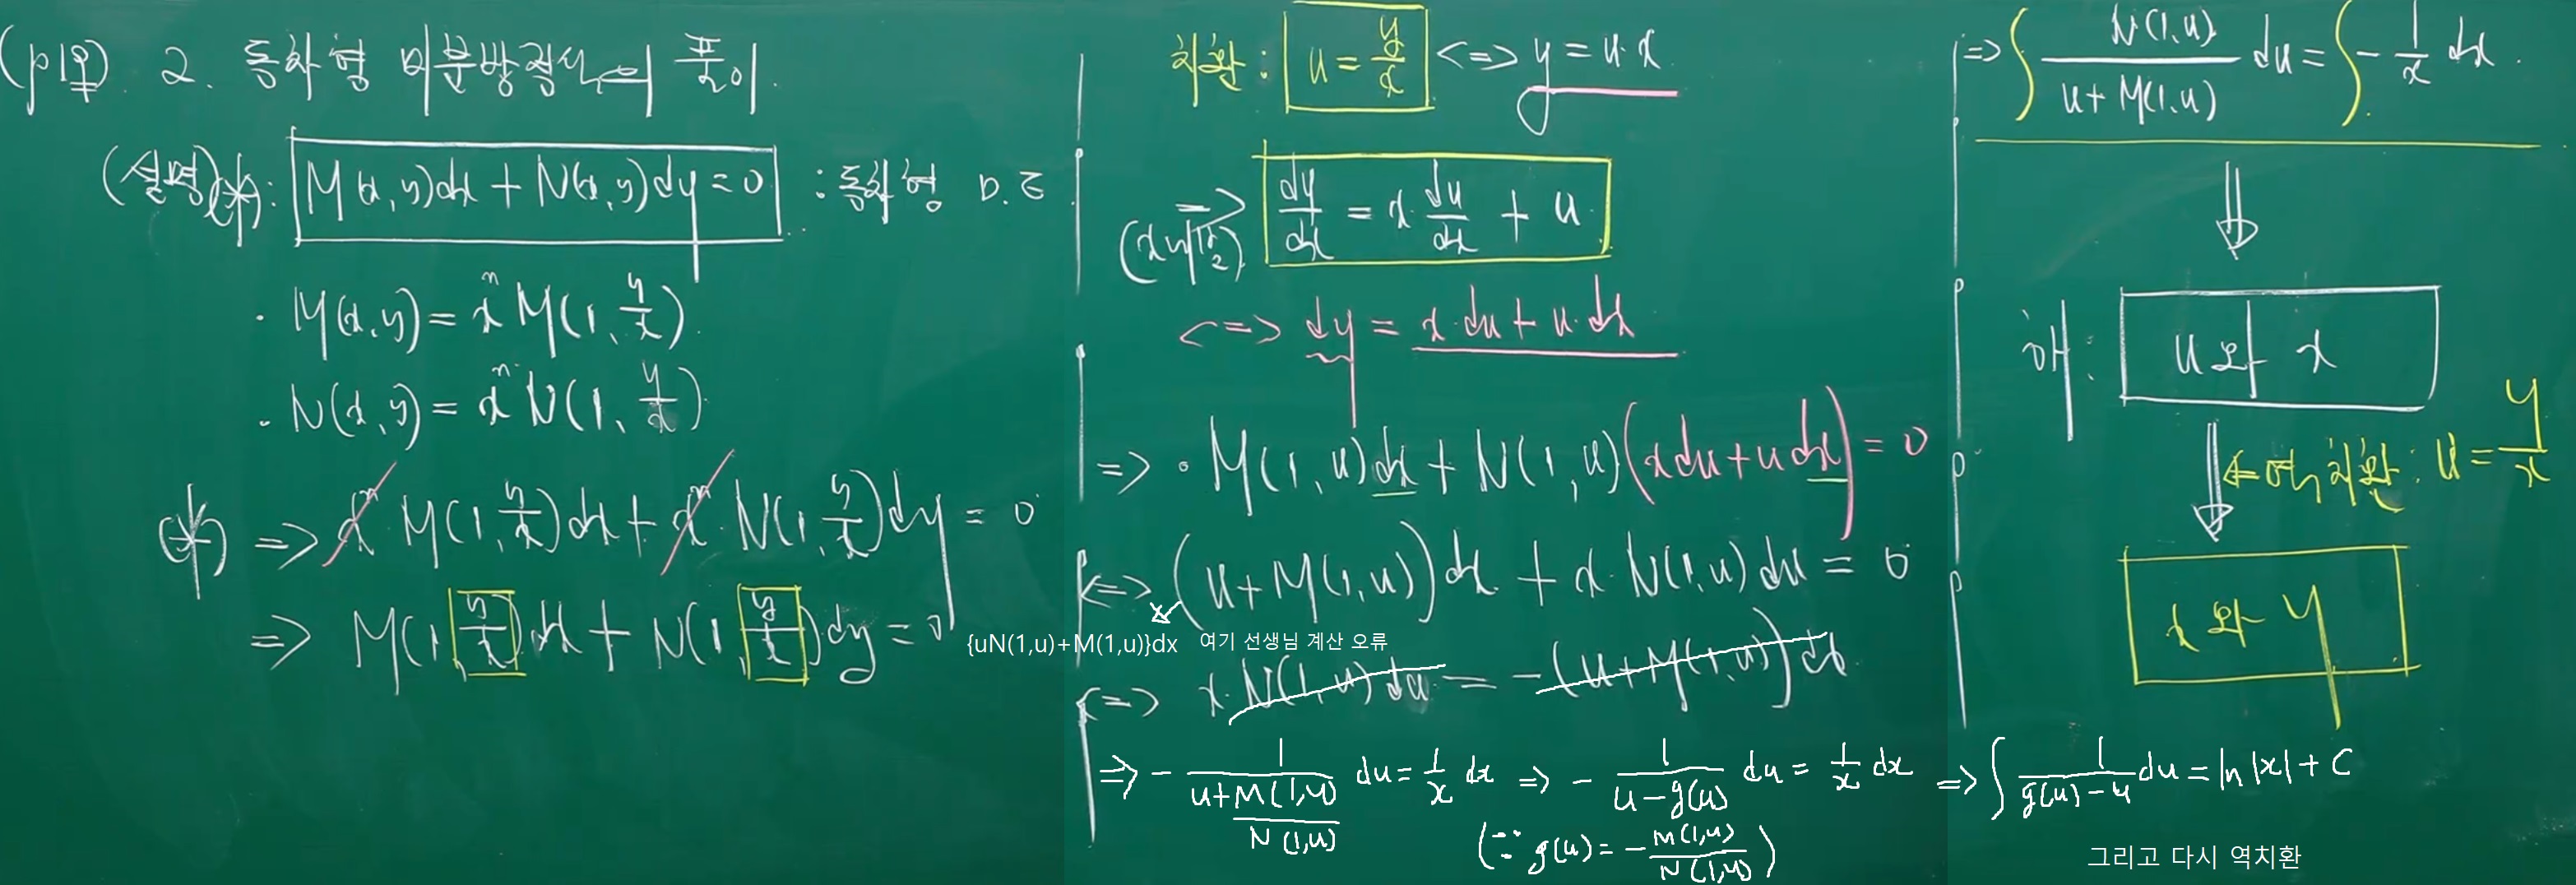 (p18) 2. 동차형 미분방정식의 풀이.
(설명)(*): M(x,y)dx + N(x,y)dy = 0 : 동차형 D.E
· M(x,y) = xⁿ M(1, y/x).
· N(x,y) = xⁿ N(1, y/x)
(*) => xⁿ·M(1, y/x)dx + xⁿ·N(1, y/x)dy = 0
=> M(1, y/x)dx + N(1, y/x)dy = 0
치환 : u = y/x <=> y = u·x
=> dy/dx = x·du/dx + u
<=> dy = x·du + u·dx
=> · M(1,u)dx + N(1,u)(xdu + udx) = 0
<=> (u+M(1,u))dx + x·N(1,u)du = 0
{uN(1,u)+M(1,u)}dx 여기 선생님 계산 오류
<=> x·N(1,u)du = -(u+M(1,u))dx
=> - 1/(u + M(1,u)/N(1,u)) du = 1/x dx => - 1/(u - g(u)) du = 1/x dx => ∫ 1/(g(u) - u) du = ln|x| + C
(∵ g(u) = - M(1,u)/N(1,u))
=> ∫ N(1,u)/(u+M(1,u)) du = ∫ - 1/x dx.
해: u와 x
<= 역치환 : u = y/x
x와 y
그리고 다시 역치환